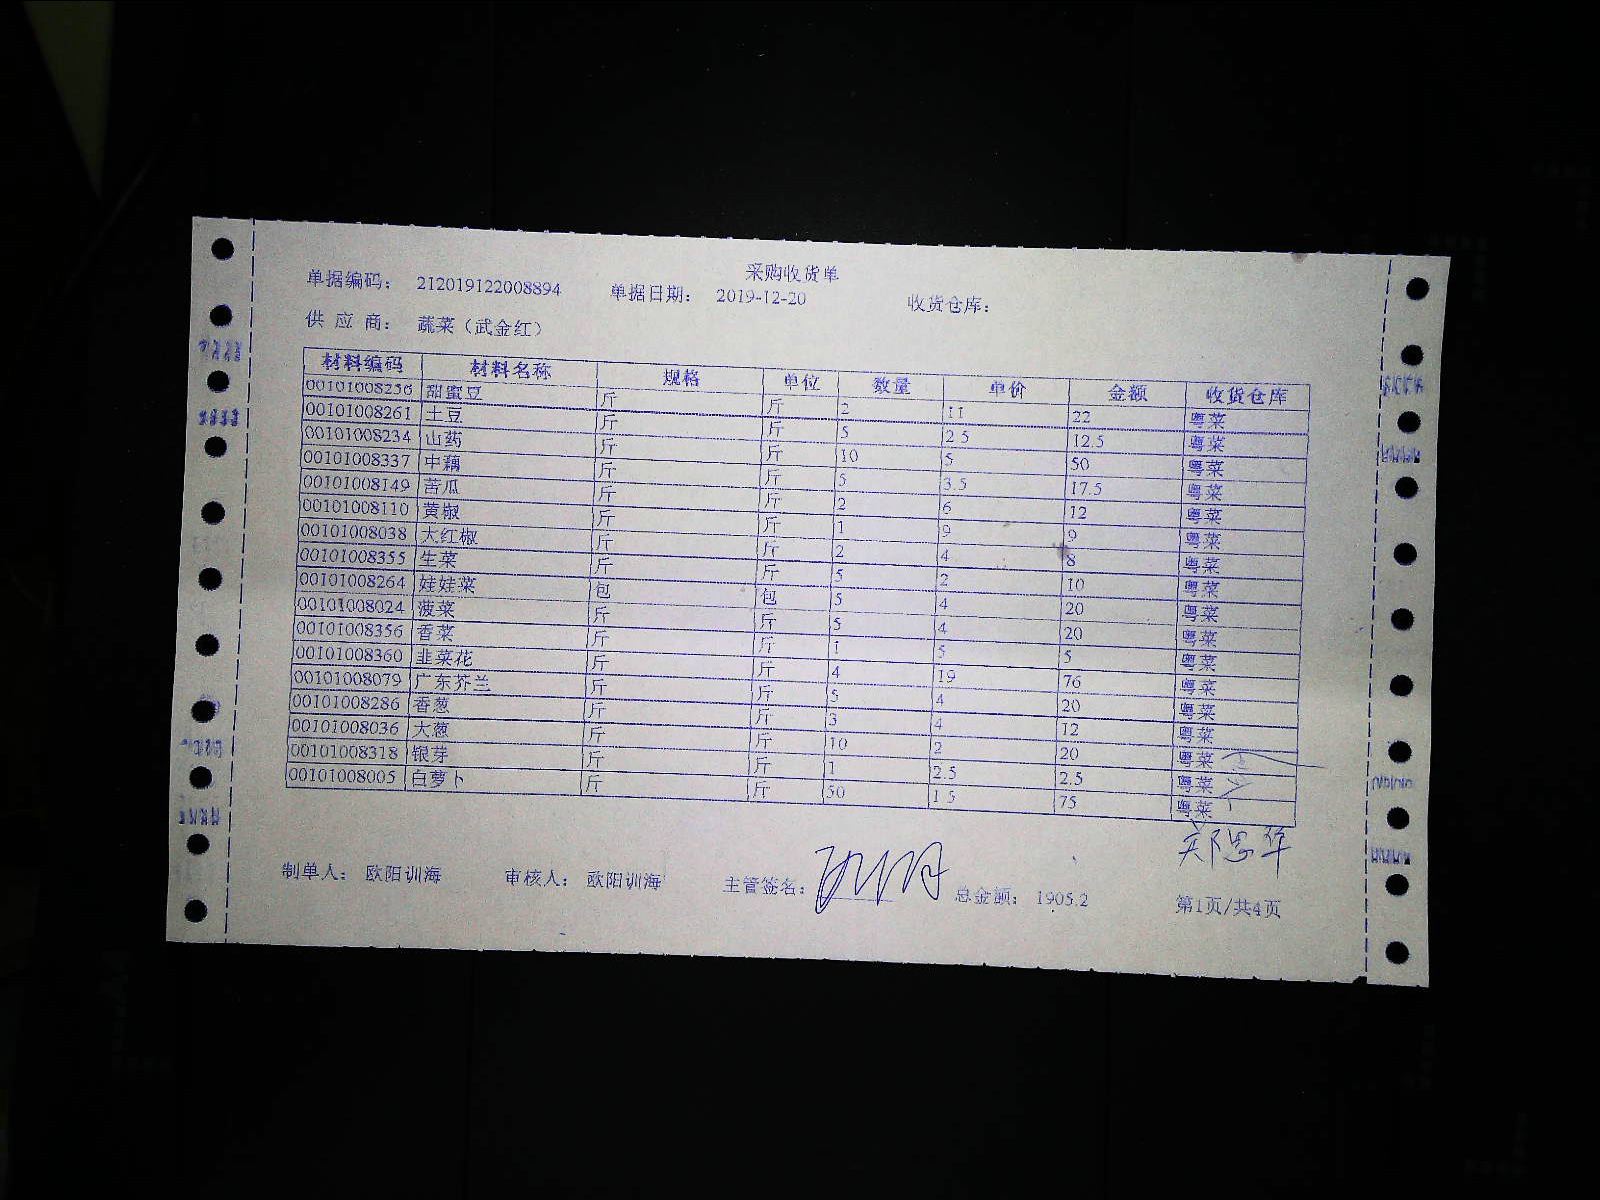 采购收货单
单据编码： 212019122008894 单据日期： 2019-12-20 收货仓库：
供 应 商： 蔬菜（武金红）
材料编码 材料名称 规格 单位 数量 单价 金额 收货仓库
00101008256 甜蜜豆 斤 斤 2 11 22 粤菜
00101008261 土豆 斤 斤 5 2.5 12.5 粤菜
00101008234 山药 斤 斤 10 5 50 粤菜
00101008337 中藕 斤 斤 5 3.5 17.5 粤菜
00101008149 苦瓜 斤 斤 2 6 12 粤菜
00101008110 黄椒 斤 斤 1 9 9 粤菜
00101008038 大红椒 斤 斤 2 4 8 粤菜
00101008355 生菜 斤 斤 5 2 10 粤菜
00101008264 娃娃菜 包 包 5 4 20 粤菜
00101008024 菠菜 斤 斤 5 4 20 粤菜
00101008356 香菜 斤 斤 1 5 5 粤菜
00101008360 韭菜花 斤 斤 4 19 76 粤菜
00101008079 广东芥兰 斤 斤 5 4 20 粤菜
00101008286 香葱 斤 斤 3 4 12 粤菜
00101008036 大葱 斤 斤 10 2 20 粤菜
00101008318 银芽 斤 斤 1 2.5 2.5 粤菜
00101008005 白萝卜 斤 斤 50 1.5 75 粤菜
郑思华
制单人： 欧阳训海 审核人： 欧阳训海 主管签名： 总金额： 1905.2 第1页/共4页